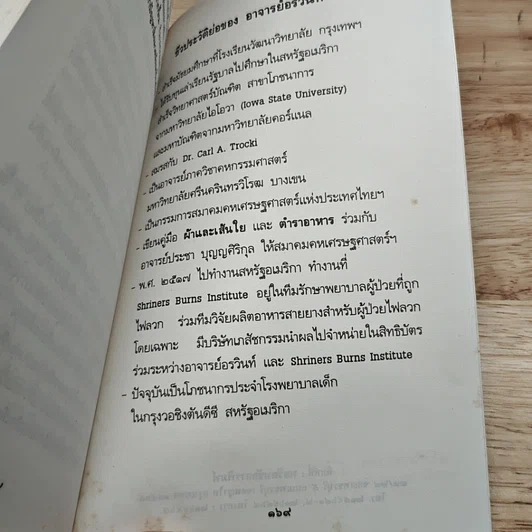 ชีวประวัติย่อของ อาจารย์อรวินท์
สำเร็จมัธยมศึกษาที่โรงเรียนวัฒนาวิทยาลัย กรุงเทพฯ
ได้รับทุนเล่าเรียนรัฐบาลไปศึกษาในสหรัฐอเมริกา
สำเร็จวิทยาศาสตร์บัณฑิต สาขาโภชนาการ
จากมหาวิทยาลัยไอโอวา (Iowa State University)
และมหาบัณฑิตจากมหาวิทยาลัยคอร์แนล
- สมรสกับ Dr. Carl A. Trocki
- เป็นอาจารย์ภาควิชาคหกรรมศาสตร์
มหาวิทยาลัยศรีนครินทรวิโรฒ บางเขน
- เป็นกรรมการสมาคมคหเศรษฐศาสตร์แห่งประเทศไทยฯ
- เขียนคู่มือ ผ้าและเส้นใย และ ตำราอาหาร ร่วมกับ
อาจารย์ประชา บุญญสิริกูล ให้สมาคมคหเศรษฐศาสตร์ฯ
- พ.ศ. ๒๕๑๗ ไปทำงานสหรัฐอเมริกา ทำงานที่
Shriners Burns Institute อยู่ในทีมรักษาพยาบาลผู้ป่วยที่ถูก
ไฟลวก ร่วมทีมวิจัยผลิตอาหารสายยางสำหรับผู้ป่วยไฟลวก
โดยเฉพาะ มีบริษัทเภสัชกรรมนำผลไปจำหน่ายในสิทธิบัตร
ร่วมระหว่างอาจารย์อรวินท์ และ Shriners Burns Institute
- ปัจจุบันเป็นโภชนากรประจำโรงพยาบาลเด็ก
ในกรุงวอชิงตันดีซี สหรัฐอเมริกา
๑๖๙